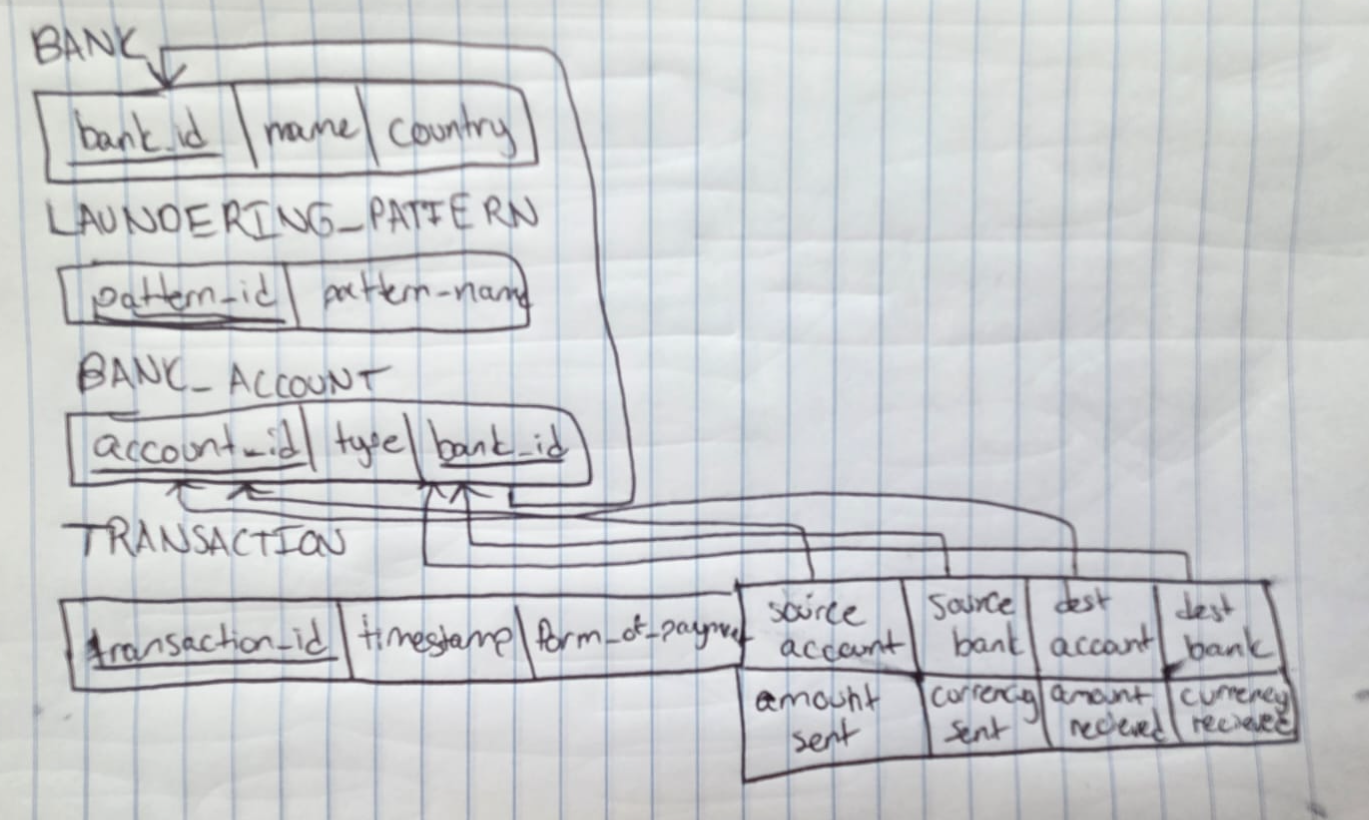 BANK
bank_id name country
LAUNDERING_PATTERN
pattern_id pattern-name
BANK_ACCOUNT
account_id type bank_id
TRANSACTION
transaction_id timestamp form_of_payment
source account
source bank
dest account
dest bank
amount sent
currency sent
amount recieved
currency recieved